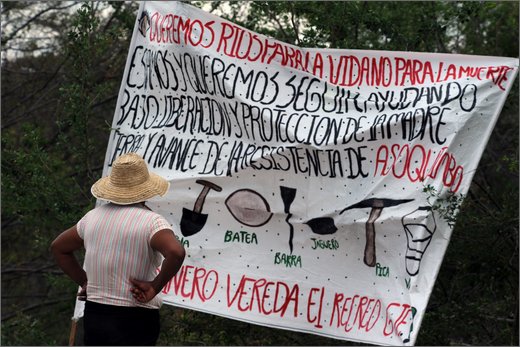 QUEREMOS RIOS PARA LA VIDA NO PARA LA MUERTE
ESTAMOS Y QUEREMOS SEGUIR AYUDANDO
BAJO LIBERACION Y PROTECCION DE LA MADRE
TIERRA Y AVANCE DE LA RESISTENCIA DE ASOQUIMBO
BATEA
BARRA
PICA
VEREDA EL RECREO